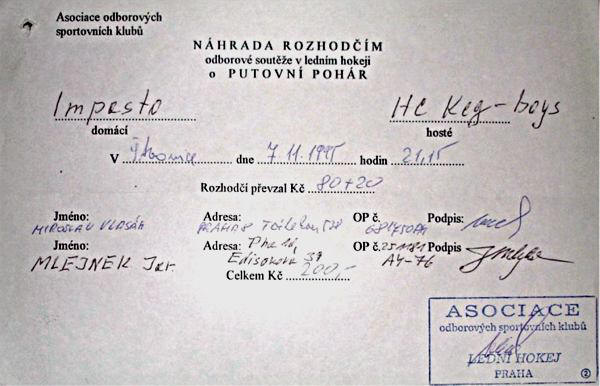 Asociace odborových
sportovních klubů
NÁHRADA ROZHODČÍM
odborové soutěže v ledním hokeji
o PUTOVNÍ POHÁR
Impasto HC Keg-boys
domácí hosté
V dne 7.11.1995 hodin 21,15
Rozhodčí převzal Kč 80+20
Jméno: Adresa: OP č. Podpis:
MIROSLAV VLASÁK PRAHA 8
Jméno: Adresa: Pha 10 OP č. 251181 Podpis
MLEJNEK Jar. Edisonova 39 AY-76
Celkem Kč 200,-
ASOCIACE
odborových sportovních klubů
LEDNÍ HOKEJ
PRAHA 2